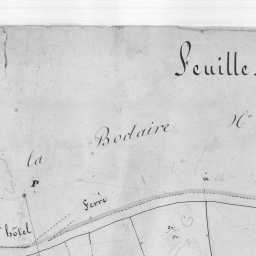 Feuille
la Boclaire
P.
ferré
hôtel